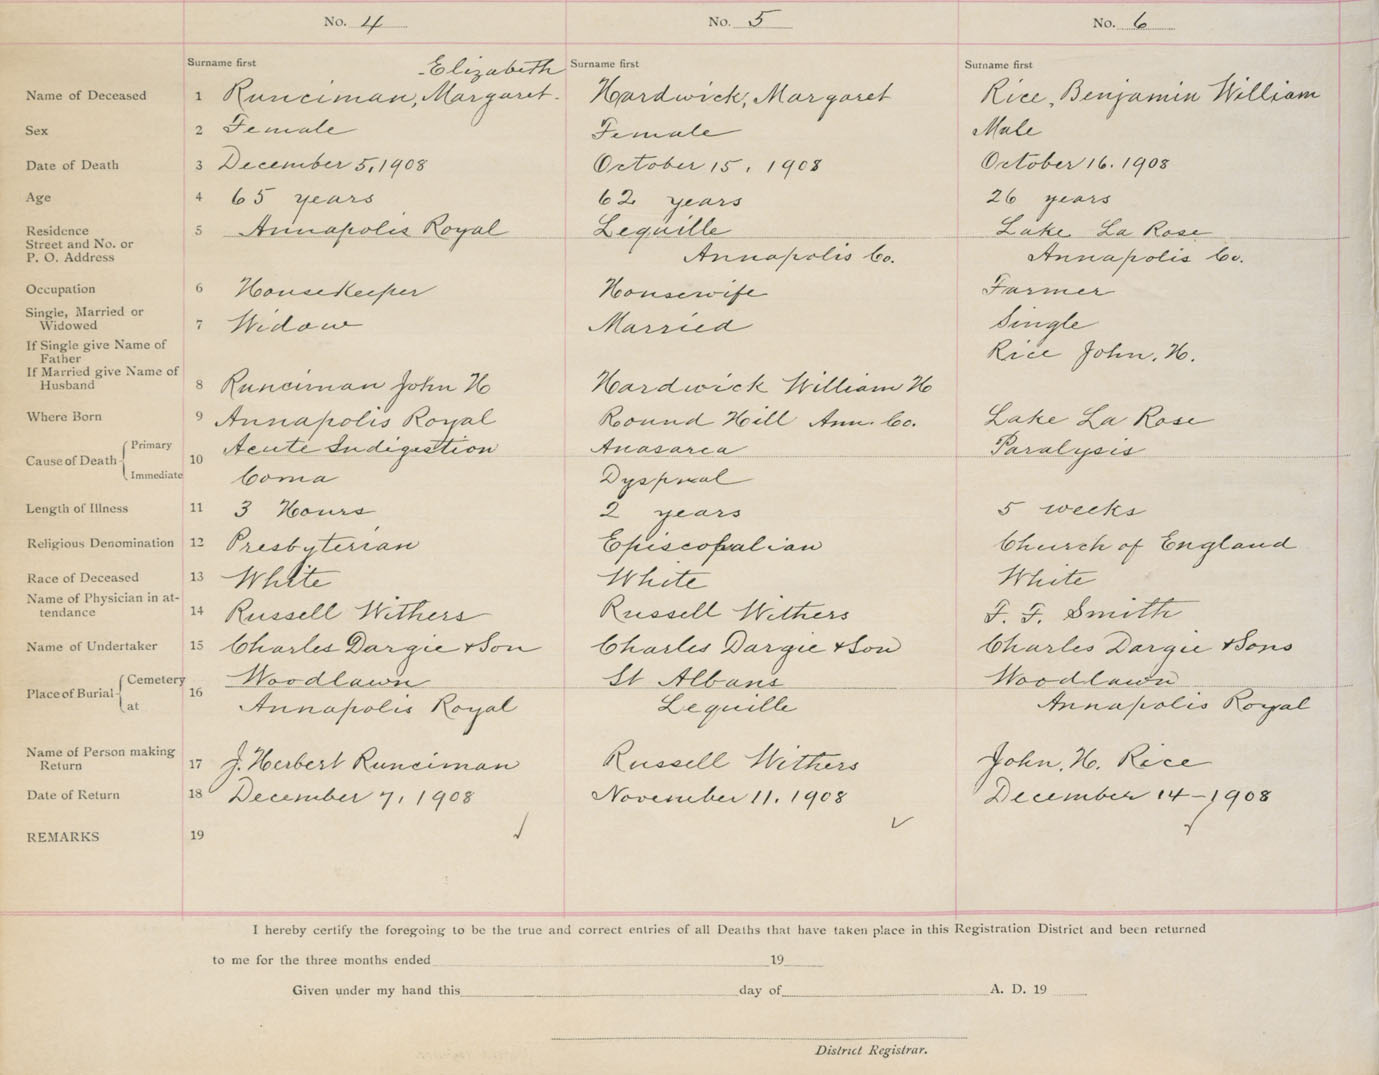 No. 4 No. 5 No. 6
Surname first Elizabeth Surname first Surname first
Name of Deceased 1 Runciman, Margaret. Hardwick, Margaret Rice, Benjamin William
Sex 2 Female Female Male
Date of Death 3 December 5, 1908 October 15, 1908 October 16. 1908
Age 4 65 years 62 years 26 years
Residence 5 Annapolis Royal Lequille Lake La Rose
Street and No. or
P. O. Address Annapolis Co. Annapolis Co.
Occupation 6 Housekeeper Housewife Farmer
Single, Married or
Widowed 7 Widow Married Single
If Single give Name of
Father Rice John. H.
If Married give Name of
Husband 8 Runciman John H Hardwick William H
Where Born 9 Annapolis Royal Round Hill Ann. Co. Lake La Rose
Cause of Death Primary 10 Acute Indigestion Anasarca Paralysis
Immediate Coma
Length of Illness 11 3 Hours 2 years 5 weeks
Religious Denomination 12 Presbyterian Episcopalian Church of England
Race of Deceased 13 White White White
Name of Physician in at-
tendance 14 Russell Withers Russell Withers F. F. Smith
Name of Undertaker 15 Charles Dargie + Son Charles Dargie + Son Charles Dargie + Sons
Place of Burial Cemetery 16 Woodlawn St Albans Woodlawn
at Annapolis Royal Lequille Annapolis Royal
Name of Person making
Return 17 J. Herbert Runciman Russell Withers John. H. Rice
Date of Return 18 December 7, 1908 November 11. 1908 December 14 - 1908
REMARKS 19
I hereby certify the foregoing to be the true and correct entries of all Deaths that have taken place in this Registration District and been returned
to me for the three months ended 19
Given under my hand this day of A. D. 19
District Registrar.